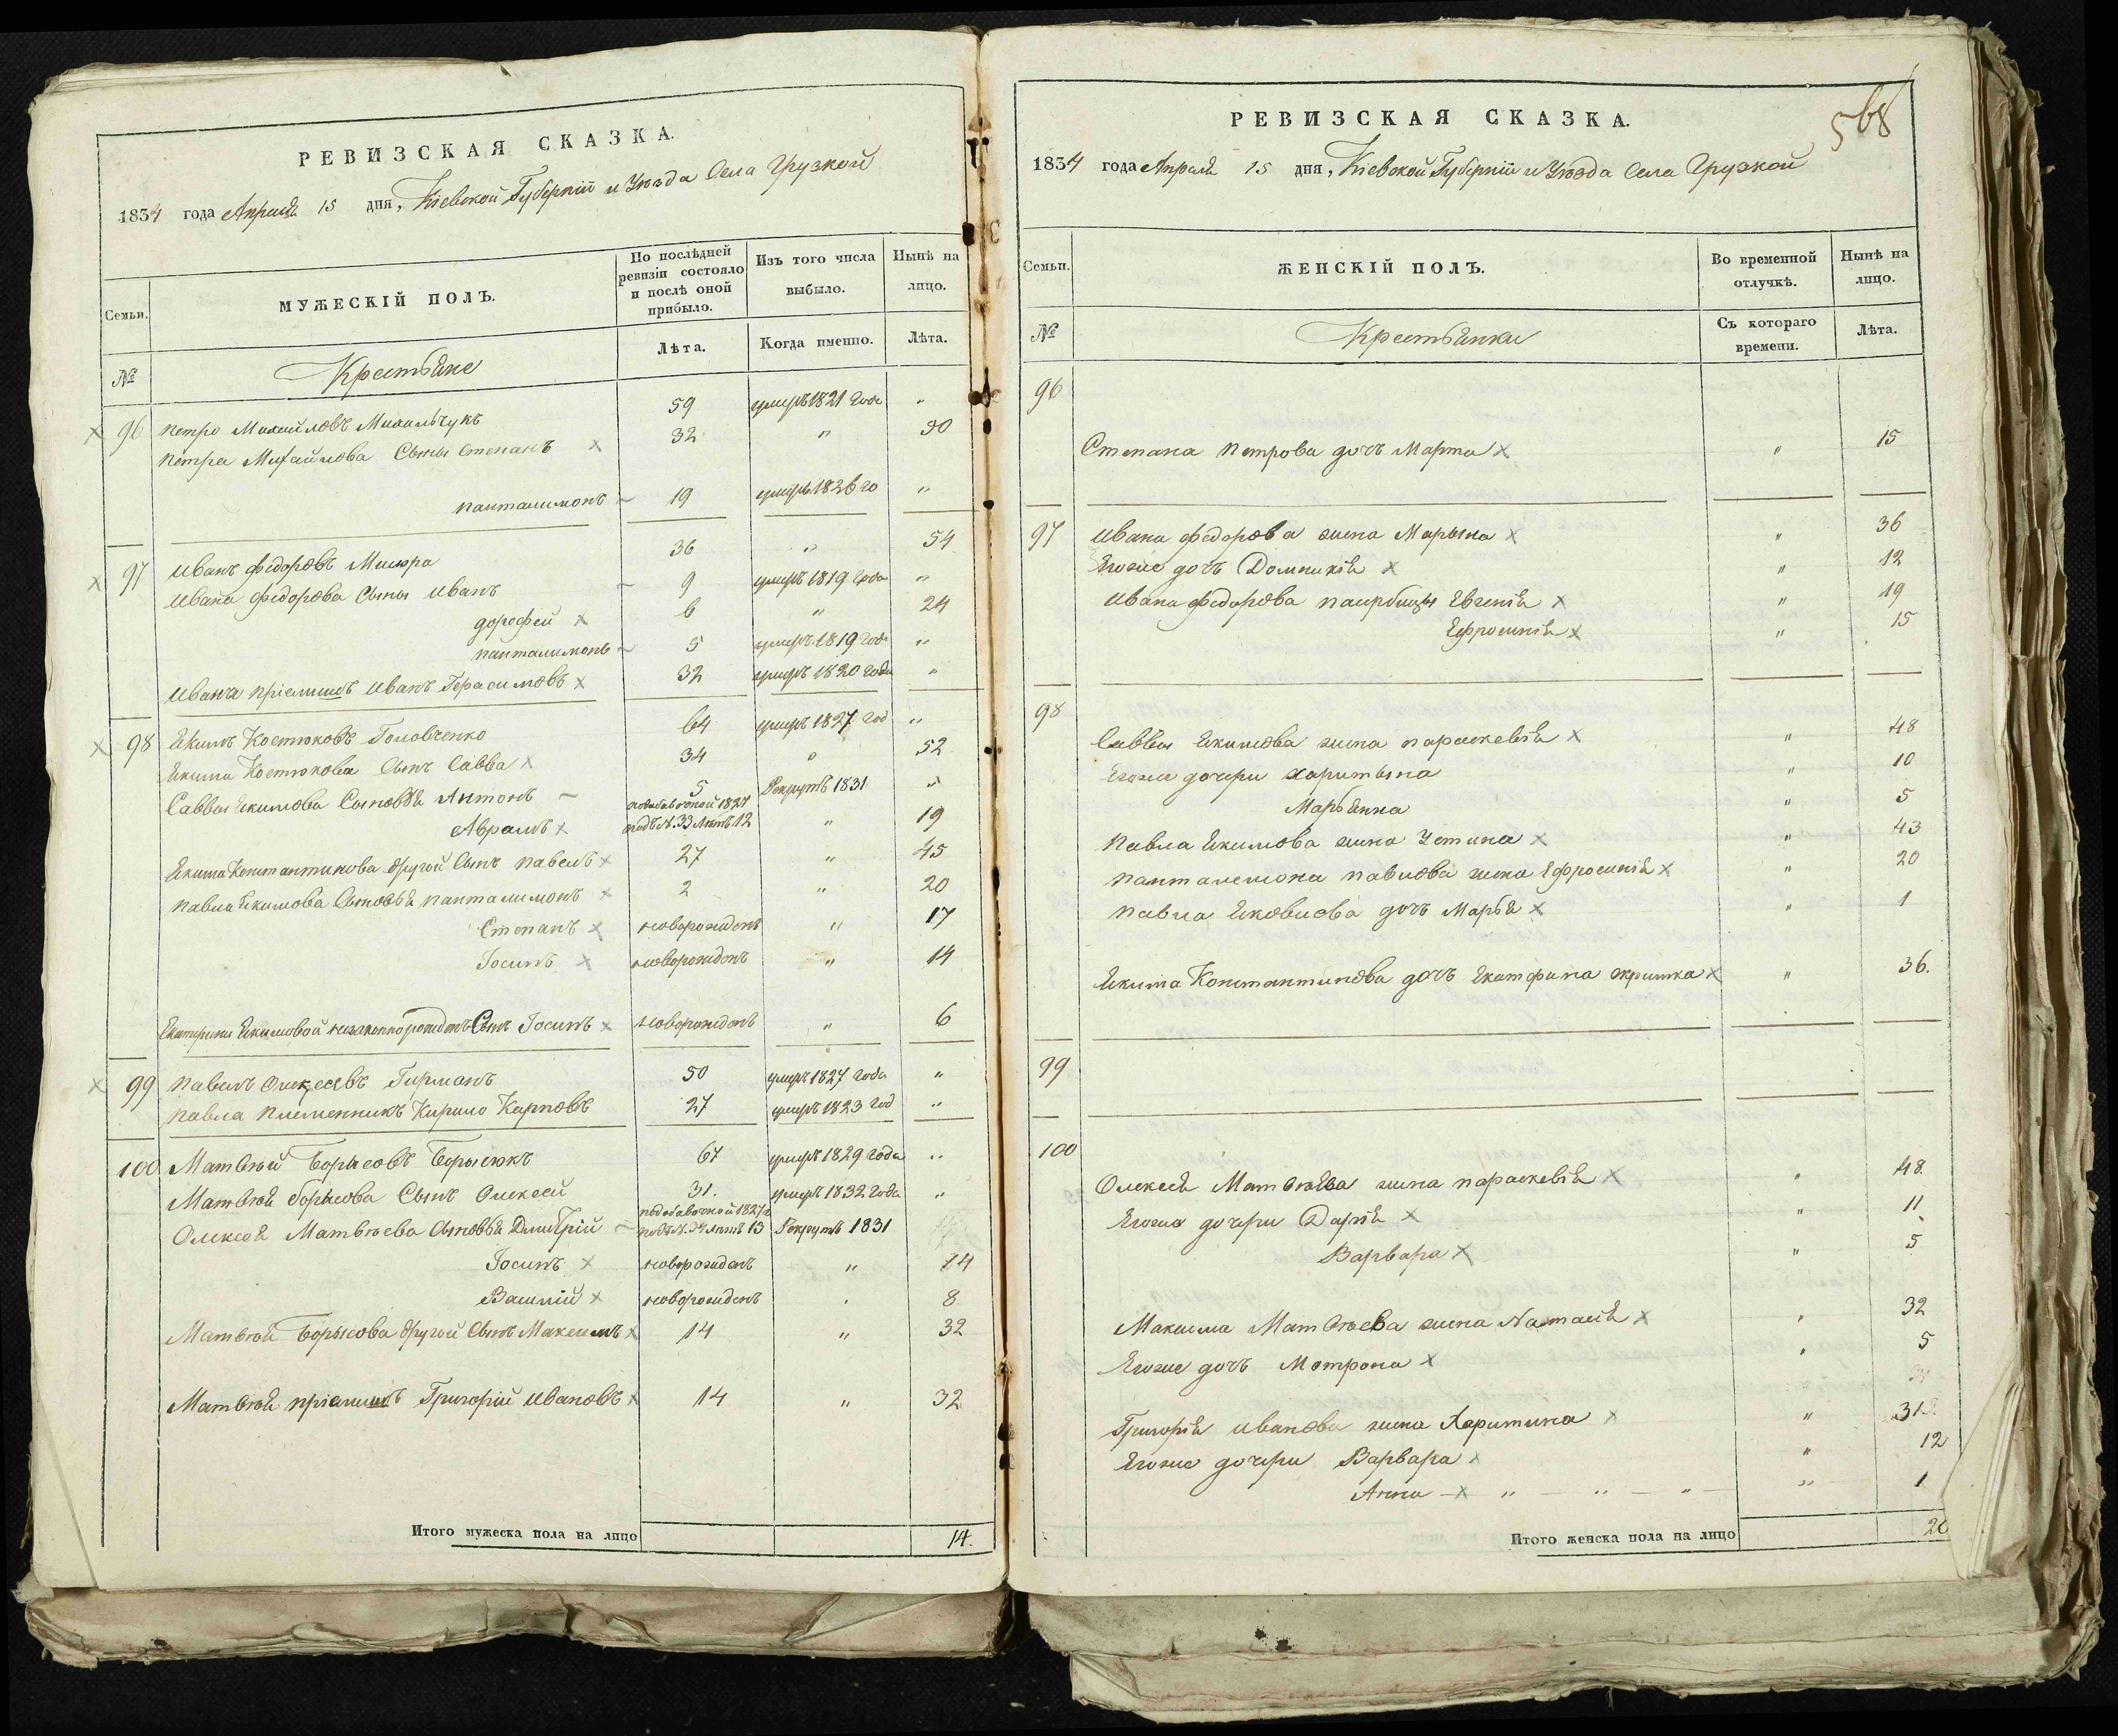 РЕВИЗСКАЯ СКАЗКА.
1834 года Апреля 15 дня, Кіевской Губерніи и Уѣзда Села Грузкой
Семьи.
МУЖЕСКІЙ ПОЛЪ.
По послѣдней ревизіи состояло и послѣ оной прибыло.
Изъ того числа выбыло.
Нынѣ на лицо.
№
Крестьяне
Лѣта.
Когда именно.
Лѣта.
96 Петро Михайловъ Михальчукъ 59 умеръ 1821 года "
Петра Михайлова Сыны Степанъ 32 " 30
Панталимонъ 19 умеръ 1826 го "
97 Иванъ Федоровъ Мисюра 36 " 54
Ивана Федорова Сыны Иванъ 9 умеръ 1819 года "
Дорофей 6 " 24
Панталимонъ 5 умеръ 1819 года "
Ивана пріемышъ Иванъ Герасимовъ 32 умеръ 1820 года "
98 Якимъ Костюковъ Головченко 64 умеръ 1827 год "
Якима Костюкова Сынъ Савва 34 " 52
Саввы Якимова Сыновья Антонъ 5 Рекрутъ 1831 "
Аврамъ подобавочной 1827 подъ №. 33 лѣтъ 12 " 19
Якима Константинова другой Сынъ Павелъ 27 " 45
Павла Якимова Сыновья Панталимонъ 2 " 20
Степанъ новорожденъ " 17
Іосипъ новорожденъ " 14
Екатерины Якимовой незаконнорожденъ Сынъ Іосипъ новорожденъ " 6
99 Павелъ Олексеевъ Гирманъ 50 умеръ 1827 года "
Павла племенникъ Кирило Карповъ 27 умеръ 1823 год "
100 Матвѣй Борысовъ Борысюкъ 67 умеръ 1829 года "
Матвѣя Борысова Сынъ Олексей 31. умеръ 1832 года "
Олексея Матвѣева Сыновья Дмитрій подобавочной 1827 подъ №. 34 лѣтъ 13 Рекрутъ 1831
Іосипъ новорожденъ " 14
Василій новорожденъ " 8
Матвѣя Борысова другой Сынъ Максимъ 14 " 32
Матвѣя пріемышъ Григорій Ивановъ 14 " 32
Итого мужеска пола на лицо 14.
568
РЕВИЗСКАЯ СКАЗКА.
1834 года Апреля 15 дня, Кіевской Губерніи и Уѣзда Села Грузкой
Семьи.
ЖЕНСКІЙ ПОЛЪ.
Во временной отлучкѣ.
Нынѣ на лицо.
№
Крестьянки
Съ котораго времени.
Лѣта.
96
Степана Петрова дочъ Марта " 15
97 Ивана Федорова жена Марына " 36
Егоже дочъ Домникія " 12
Ивана Федорова паирбицы Евгенія " 19
Ефросинія " 15
98
Саввы Якимова жена Параскевія " 48
Егоже дочери Харитына " 10
Марьянна " 5
Павла Якимова жена Устина " 43
Панталемона Павлова жена Ефросинія " 20
Павла Яковлова дочъ Марья " 1
Якима Константинова дочъ Екатерина " 36.
99
100
Олексея Матвѣева жена Параскевія " 48.
Егоже дочери Дарія " 11
Варвара " 5
Максима Матвѣева жена Наталія " 32
Егоже дочъ Мотрона " 5
Григорія Иванова жена Харитина " 31
Егоже дочери Варвара " 12
Анна " " " " 1
Итого женска пола на лицо 20